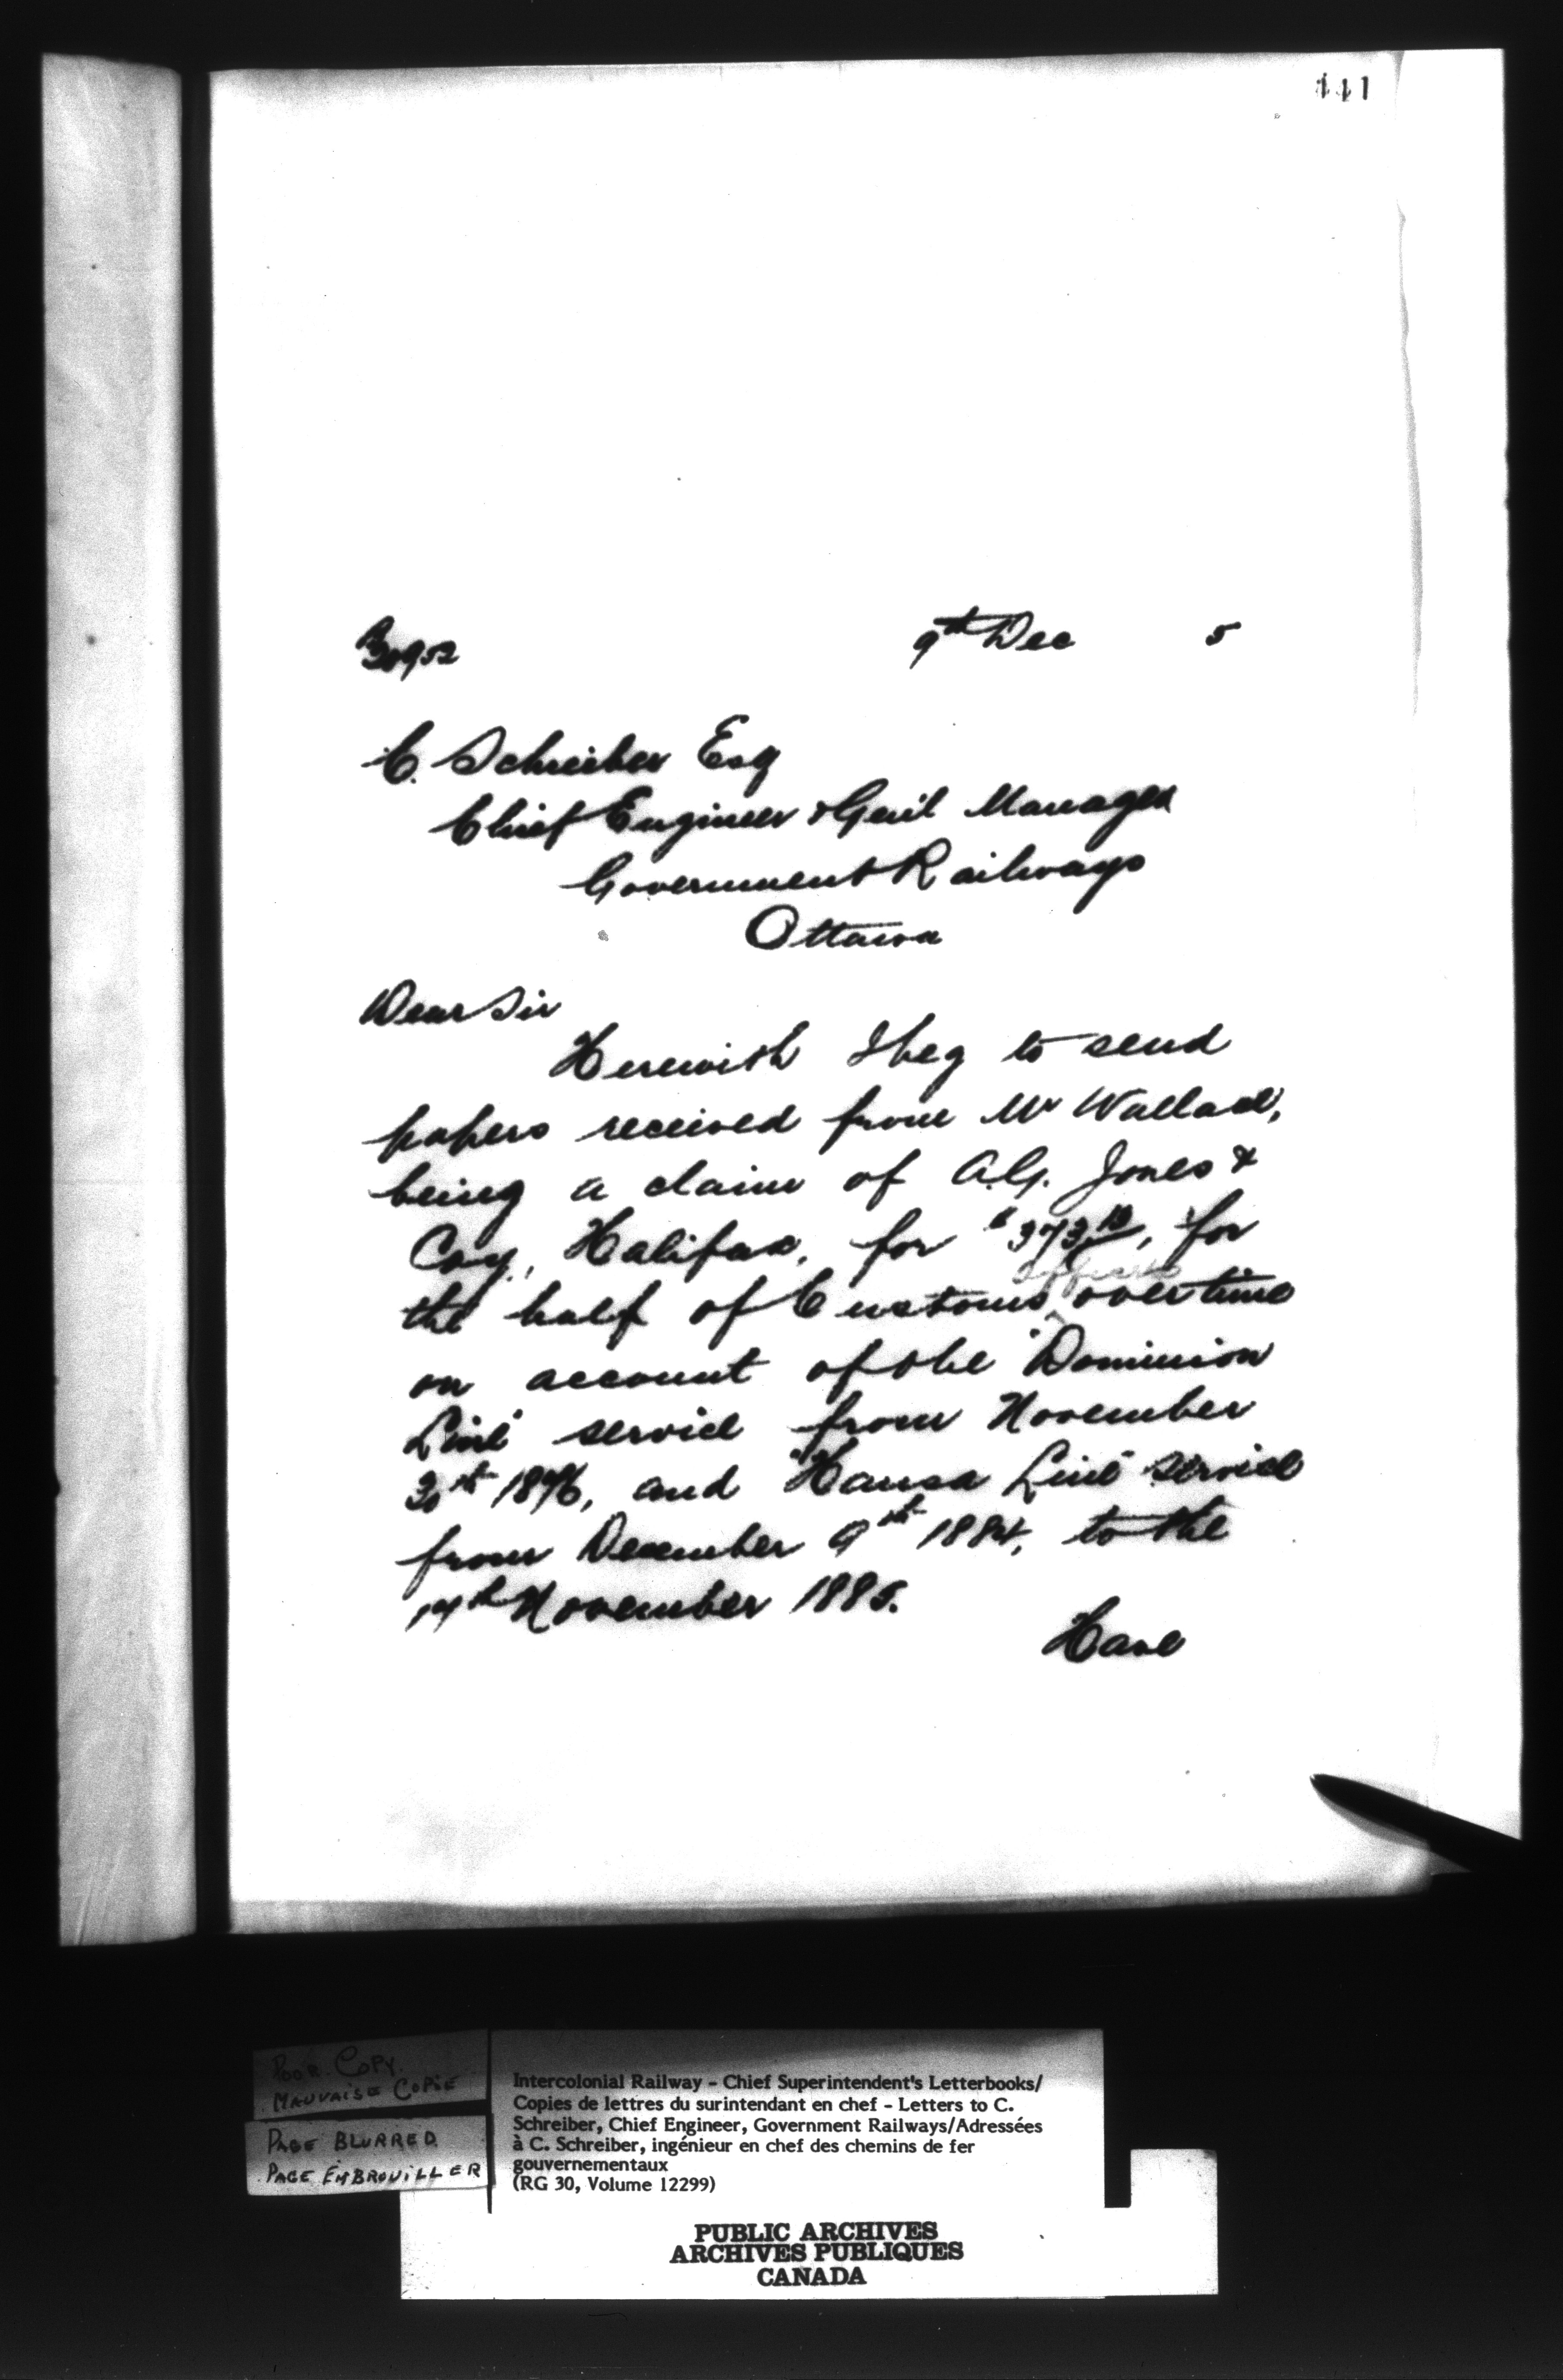 441
9th Dec 5
C. Schreiber Esq
Chief Engineer & Genl Manager
Government Railways
Ottawa
Dear Sir
Herewith I beg to send
papers received from Mr Wallace,
being a claim of A.G. Jones &
Coy., Halifax, for $373.13, for
officers
the half of Customs overtime
on account of the "Dominion
Line" service from November
30th 1876, and "Hansa Line" service
from December 9th 1884, to the
14th November 1885.
Have
POOR COPY.
MAUVAISE COPIE
PAGE BLURRED
PAGE EMBROUILLER
Intercolonial Railway - Chief Superintendent's Letterbooks/
Copies de lettres du surintendant en chef - Letters to C.
Schreiber, Chief Engineer, Government Railways/Adressées
à C. Schreiber, ingénieur en chef des chemins de fer
gouvernementaux
(RG 30, Volume 12299)
PUBLIC ARCHIVES
ARCHIVES PUBLIQUES
CANADA